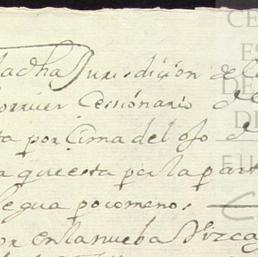 ladha Jurisdicion de l
orrier Cessionario de
ta por Cima del oso de
a que esta por la part
legua poco menos
or en la nueba Vizca
CE
ES
DE
DE